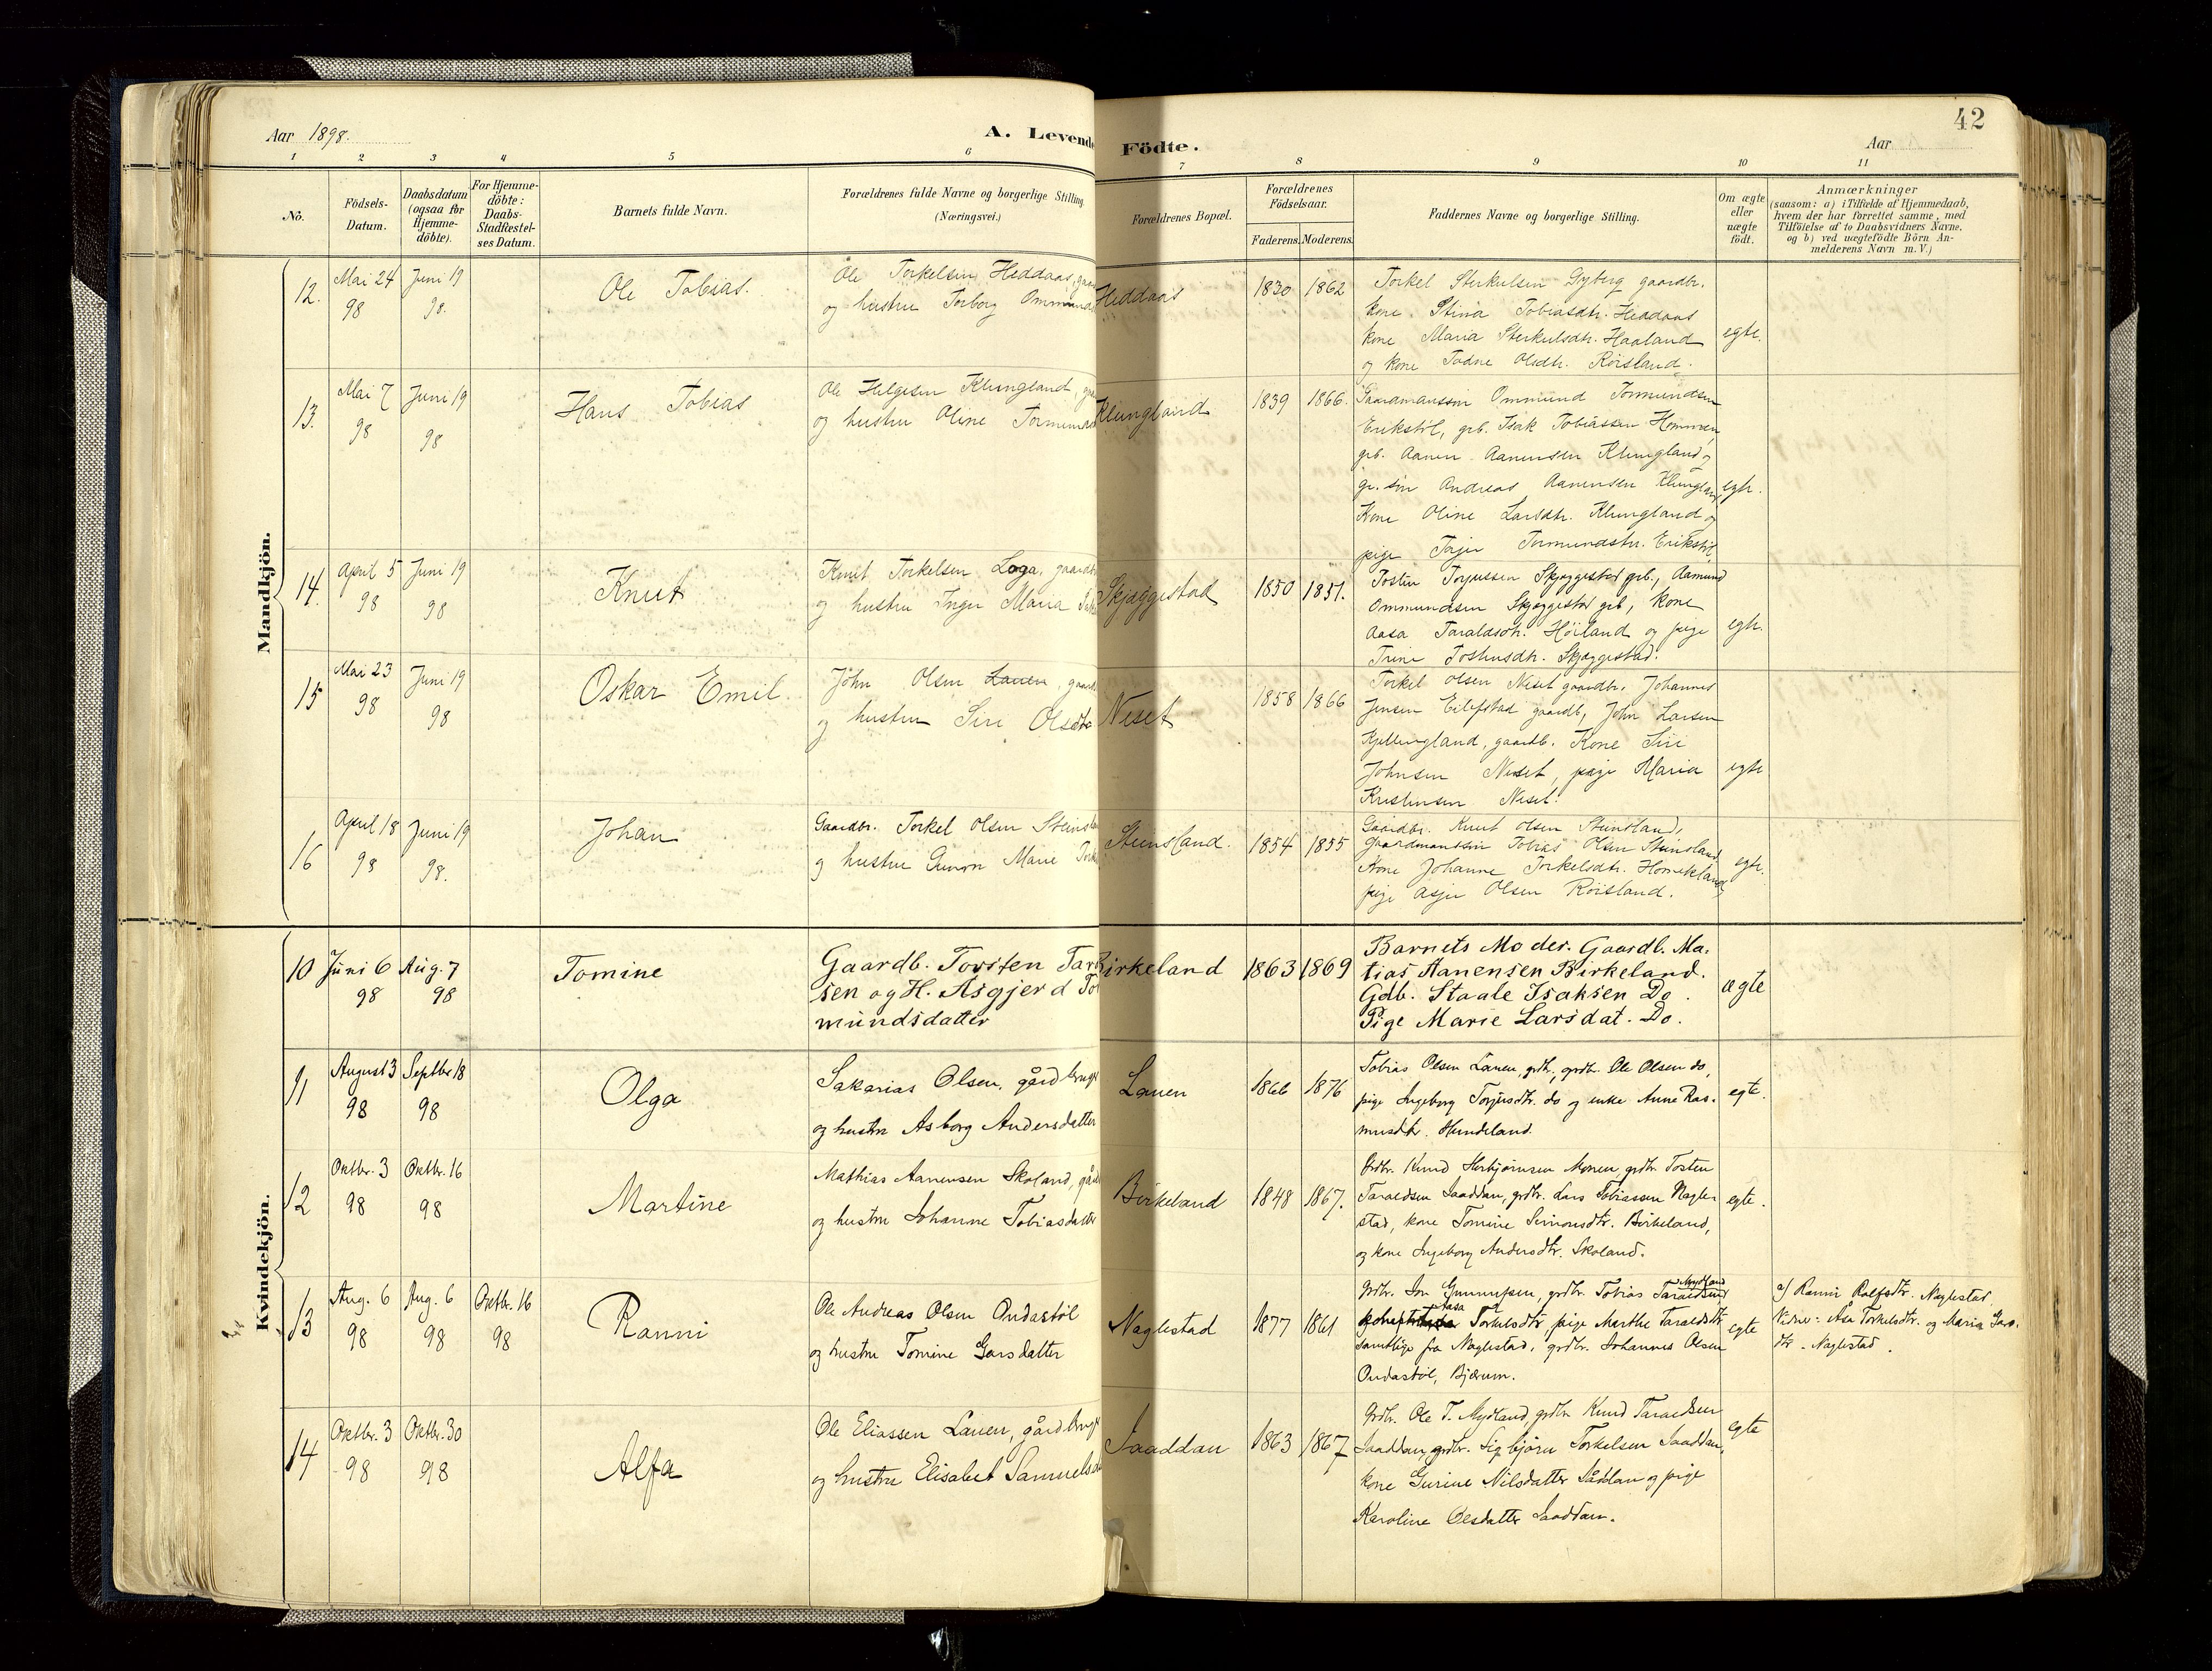 42
Aar 1898.
A. Levende
Födte.
Aar
1 2 3 4 5 6 7 8 9 10 11
No.
Födsels-
Datum.
Daabsdatum
(ogsaa for
Hjemme-
döbte).
For Hjemme-
döbte:
Daabs-
Stadfæstel-
ses Datum.
Barnets fulde Navn.
Forældrenes fulde Navne og borgerlige Stilling
(Næringsvei.)
Forældrenes Bopæl.
Forældrenes
Födselsaar.
Faderens. Moderens.
Faddernes Navne og borgerlige Stilling.
Om ægte
eller
uægte
födt.
Anmærkninger
(saasom: a) i Tilfælde af Hjemmedaab,
hvem der har forrettet samme, med
Tilföielse af to Daabsvidners Navne,
og b) ved uægtefödte Börn An-
melderens Navn m. V.)
Mandkjön.
12.
Mai 24
98
Juni 19
98.
Ole Tobias.
Ole Torkelsen Heddaas,
og hustru Torborg
Heddaas
1830 1862
Torkel Sterkulsen Gyberg gaardbr.
kone Stina Tobiasdtr. Heddaas
kone Maria Sterkulsdtr. Haaland
og kone Tadne Olsdtr. Röisland.
egte.
13.
Mai 7
98
Juni 19
98
Hans Tobias
Ole Helgesen Klungland,
og hustru Oline
Klungland
1839 1866.
Gaardmansson Ommund Tormundsen
Erikstöl, grb. Isak Tobiassen Hommen,
grb. Aanen Aanensen Klungland og
gr. sön Andreas Aanensen Klungland
Kone Oline Larsdtr. Klungland og
pige Tormundsdtr. Erikstöl
egte.
14.
April 5
98
Juni 19
98
Knut
Knut Torkelsen Loga, gaardb
og hustru Inger Maria
Skjæggestad
1850 1851.
Tosten Torjussen Skjæggestad grb., Aamund
Ommundsen Skjæggestad grb, kone
Aasa Taraldsdtr. Höiland og pige
Trine Tostensdtr. Skjæggestad.
egte.
15
Mai 23
98
Juni 19
98
Oskar Emil.
John Olsen Lauen, gaardb
og hustru Siri Olsdtr
Neset
1858 1866
Torkel Olsen Neset gaardbr. Johannes
Jensen Eilefstad gaardb, John Larsen
Kjellingland, gaardb. Kone Siri
Johnsen Neset, pige Maria
Kristensen Neset.
egte
16
April 18
98
Juni 19
98.
Johan
Gaardbr. Torkel Olsen Steinsland
og hustru Marie
Steinsland.
1854 1855
Gaardbr. Knut Olsen Steinsland,
Gaardmandssön Tobias Olsen Steinsland
Kone Johanne Torkelsdtr. Homekland
pige Asje Olsen Röisland.
egte.
Kvindekjön.
10
Juni 6
98
Aug. 7
98
Tomine
Gaardb. Torsten Tar
sen og H. Asgjerd Tor
mundsdatter
Birkeland
1863 1869
Barnets Moder. Gaardb. Ma-
tias Aanensen Birkeland.
Gdb. Staale Isaksen Do.
Pige Marie Larsdat. Do.
ægte
11
August 3
98
Septbr 18
98
Olga
Sakarias Olsen, gårdbruger
og hustru Asborg Andersdatter
Lauen
1866 1876
Tobias Olsen Lauen, grdbr, grdbr. Ole Olsen do,
pige Ingeborg Torjusdtr. do og enke Anne Ras-
musdtr. Hundeland.
egte.
12
Oktbr. 3
98
Oktbr. 16
98
Martine
Mathias Aanensen Skoland, gård
og hustru Johanne Tobiasdatter
Birkeland
1848 1867.
Grdbr. Knud Herbjörnsen Monen, grdbr Tosten
Taraldsen Saaddan, grdbr. Lars Tobiassen Nagle-
stad, kone Tomine Simonsdtr. Birkeland,
og kone Ingeborg Andersdtr. Skoland.
egte.
13
Aug. 6
98
Aug. 6
98
Oktbr. 16
98
Ranni
Ole Andreas Olsen Ondastöl
og hustru Tomine Garsdatter
Naglestad
1877 1861
Grdbr. Jon Gunnufsen, grdbr. Tobias Taraldsen Mydland
Aasa Torkelsdtr pige Marthe Taraldsdtr
samtlige fra Naglestad, grdbr. Johannes Olsen
Ondastöl, Bjærum.
egte
a) Ranni Rolfsdtr. Naglestad
Vidner: Åsa Torkelsdtr. og Maria Gars-
dtr. Naglestad.
14
Oktbr. 3
98
Oktbr. 30
98
Alfa
Ole Eliassen Lauen, gårdbrug
og hustru Elisabet Samuelsd
Saaddan
1863 1867
Grdbr. Ole T. Mydland, grdbr Knud Taraldsen
Saaddan, grdbr. Sigbjörn Torkelsen Saaddan,
kone Gurine Nilsdatter Såddan og pige
Karoline Olsdatter Saaddan.
egte